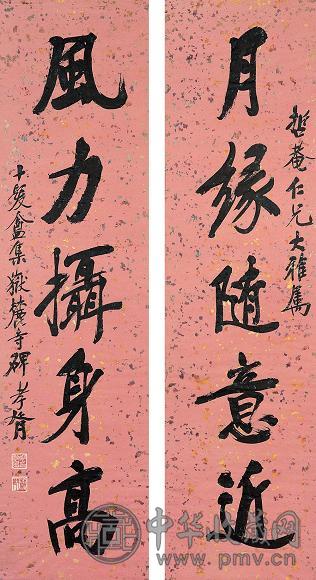 月緣隨意近
哲菴仁兄大雅屬
風力攝身高
十髮盦集嶽麓寺碑 孝胥
中华收藏网
www.pmv.cn